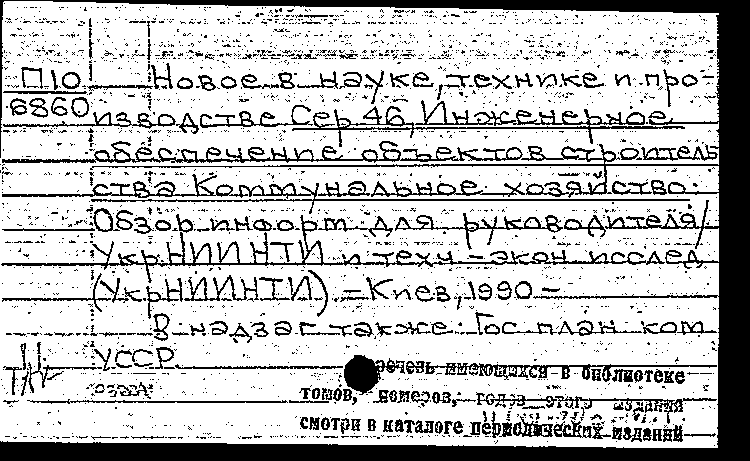 П10 Новое в науке, технике и про-
6860 изводстве Сер. 46, Инженерное
обеспечение объектов строитель
ства Коммунальное хозяйство:
Обзор. информ. для руководителя/
Укр.НИИНТИ и техн-экон исслед
(УкрНИИНТИ). – Киев, 1990 –
В надзаг также: Гос план ком
УССР.
речень имеющихся в библиотеке
томов, номеров, годов этого издания
смотри в каталоге периодических изданий